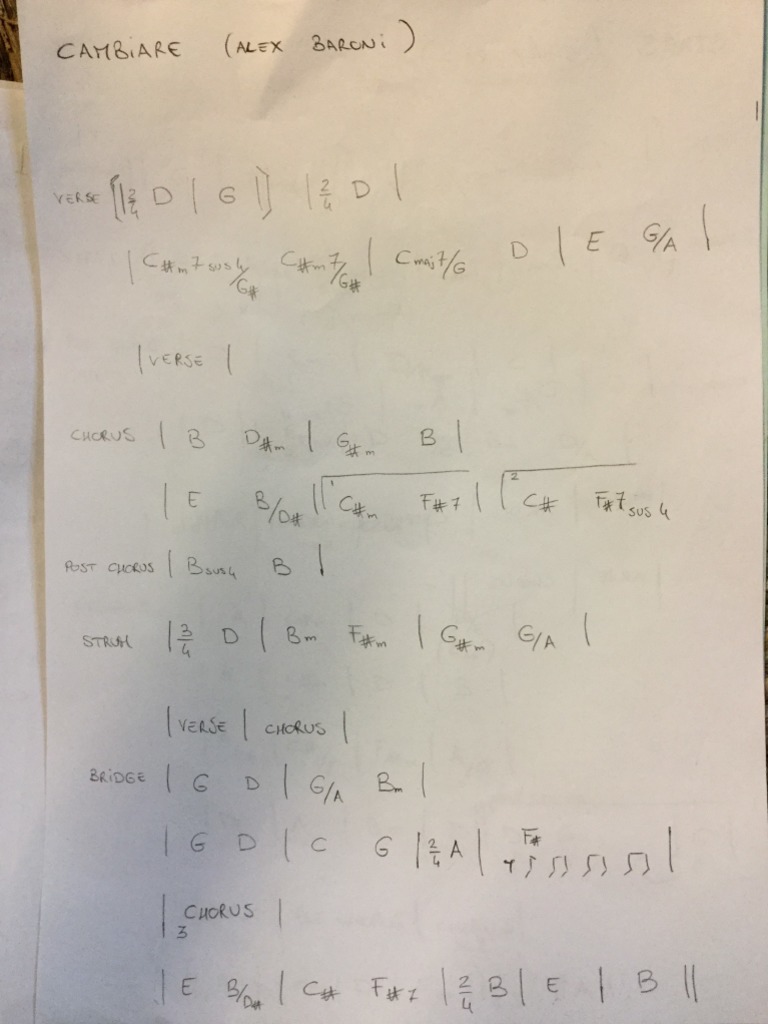 CAMBIARE (ALEX BARONI)
VERSE [|2/4 D | G |] |2/4 D |
| C#m7sus4/G# C#m7/G# | Cmaj7/G D | E G/A |
| VERSE |
CHORUS | B D#m | G#m B |
| E B/D# || 1 C#m F#7 | | 2 C# F#7sus4
POST CHORUS | Bsus4 B |
STRUM | 3/4 D | Bm F#m | G#m G/A |
| VERSE | CHORUS |
BRIDGE | G D | G/A Bm |
| G D | C G | 2/4 A | F# |
| 3 CHORUS |
| E B/D# | C# F#7 | 2/4 B | E | B ||